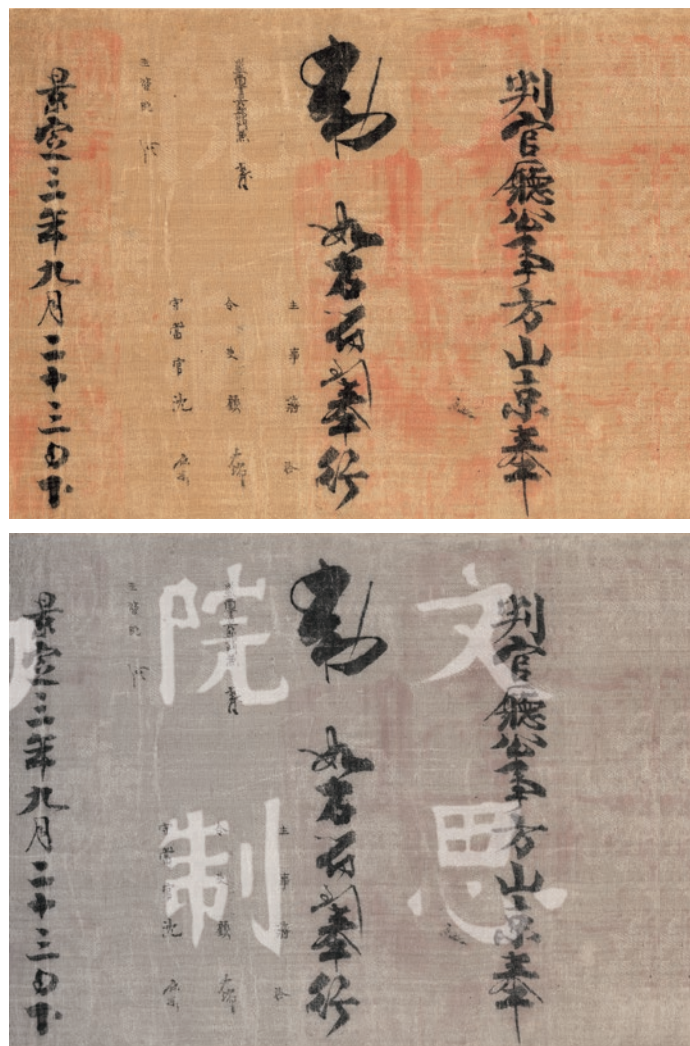 判官廳公事方山京奉
勅
如右符到奉行
主事潘
令史顧
守當官沈
景定三年九月二十三日下
文思
院制
判官廳公事方山京奉
勅
如右符到奉行
主事潘
令史顧
守當官沈
景定三年九月二十三日下